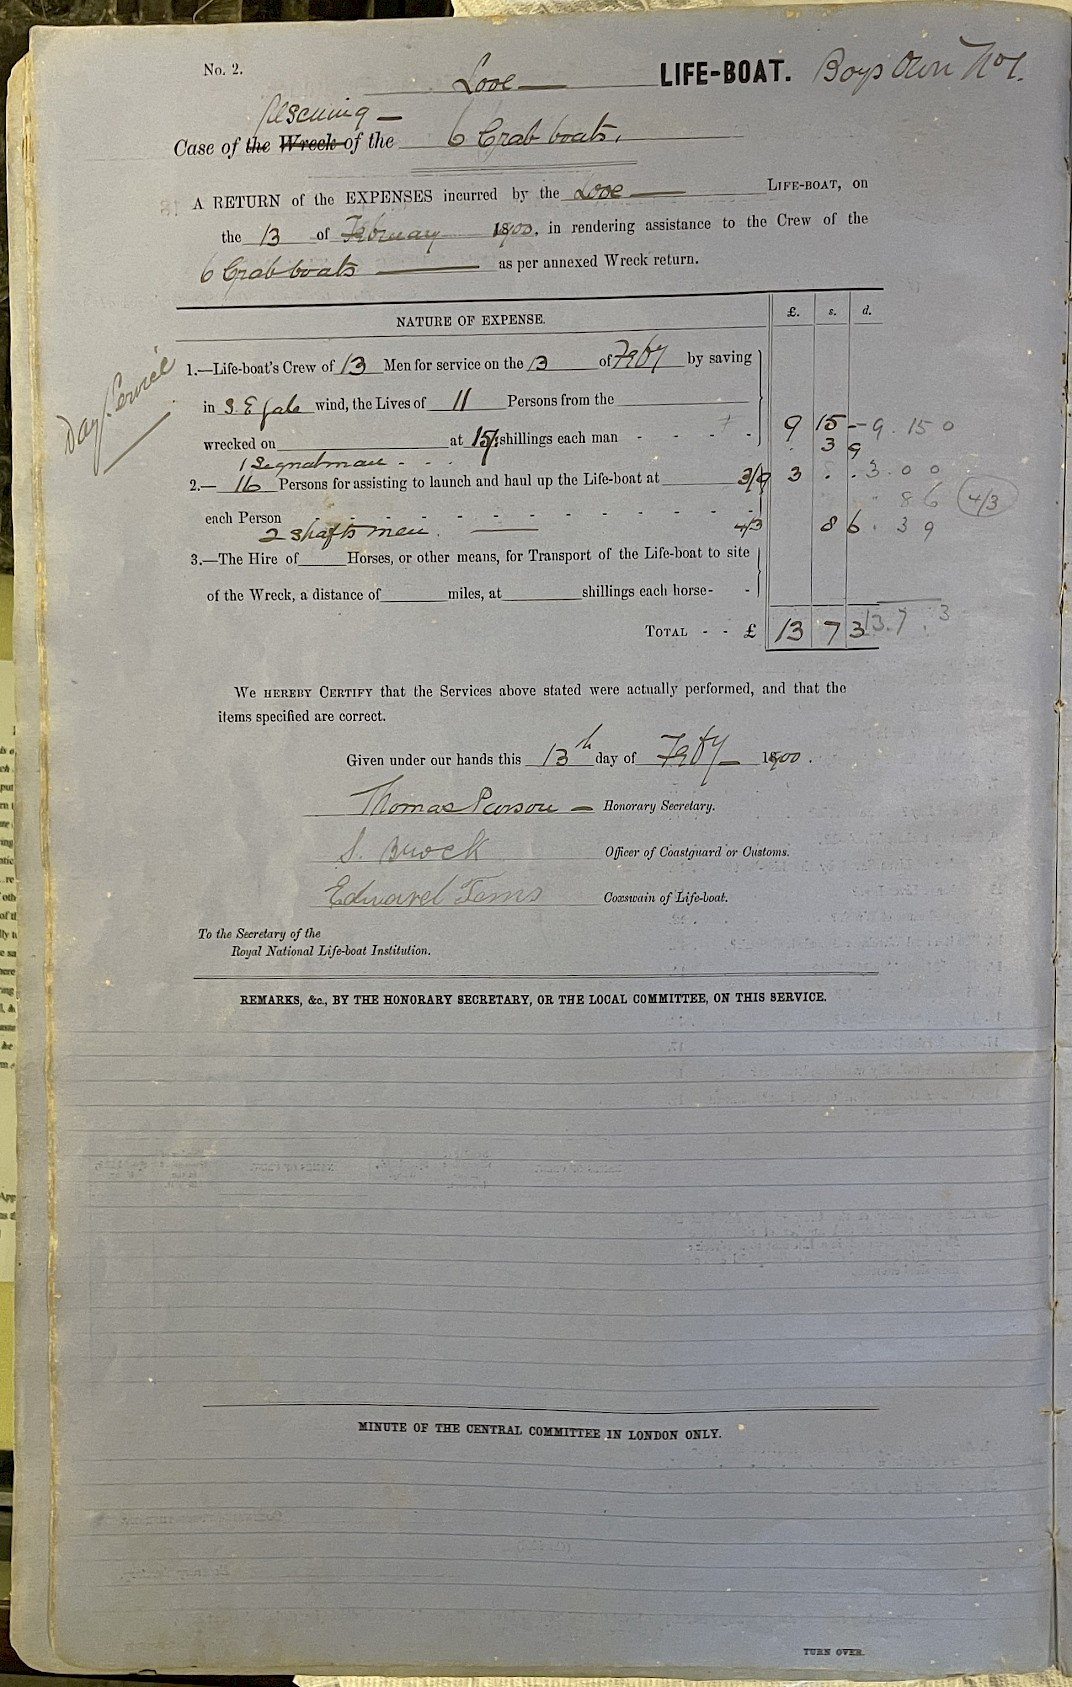 No. 2.
Looe LIFE-BOAT. Boys Own No 1.
Rescuing
Case of the Wreck of the 6 Crab boats.
A RETURN of the EXPENSES incurred by the Looe LIFE-BOAT, on
the 13 of February 1900, in rendering assistance to the Crew of the
6 Crab boats as per annexed Wreck return.
NATURE OF EXPENSE. £. s. d.
Day Service
1.—Life-boat's Crew of 13 Men for service on the 13 of Feby by saving
in S.E gale wind, the Lives of 11 Persons from the
wrecked on at 15/ shillings each man - - - - 9 15 - 9. 15 0
1 Signalman - - - 3 9
2.— 16 Persons for assisting to launch and haul up the Life-boat at 3/9 3 . . 3. 0 0
8 6 4/3
each Person - - - - - - - - - - -
2 shafts men. 4/3 8 6 . 3 9
3.—The Hire of Horses, or other means, for Transport of the Life-boat to site
of the Wreck, a distance of miles, at shillings each horse - -
TOTAL - - £ 13 7 3 13. 7. 3
We HEREBY CERTIFY that the Services above stated were actually performed, and that the
items specified are correct.
Given under our hands this 13th day of Feby 1900.
Thomas Pearson Honorary Secretary.
S. Brock Officer of Coastguard or Customs.
Edward Toms Coxswain of Life-boat.
To the Secretary of the
Royal National Life-boat Institution.
REMARKS, &c., BY THE HONORARY SECRETARY, OR THE LOCAL COMMITTEE, ON THIS SERVICE.
MINUTE OF THE CENTRAL COMMITTEE IN LONDON ONLY.
TURN OVER.